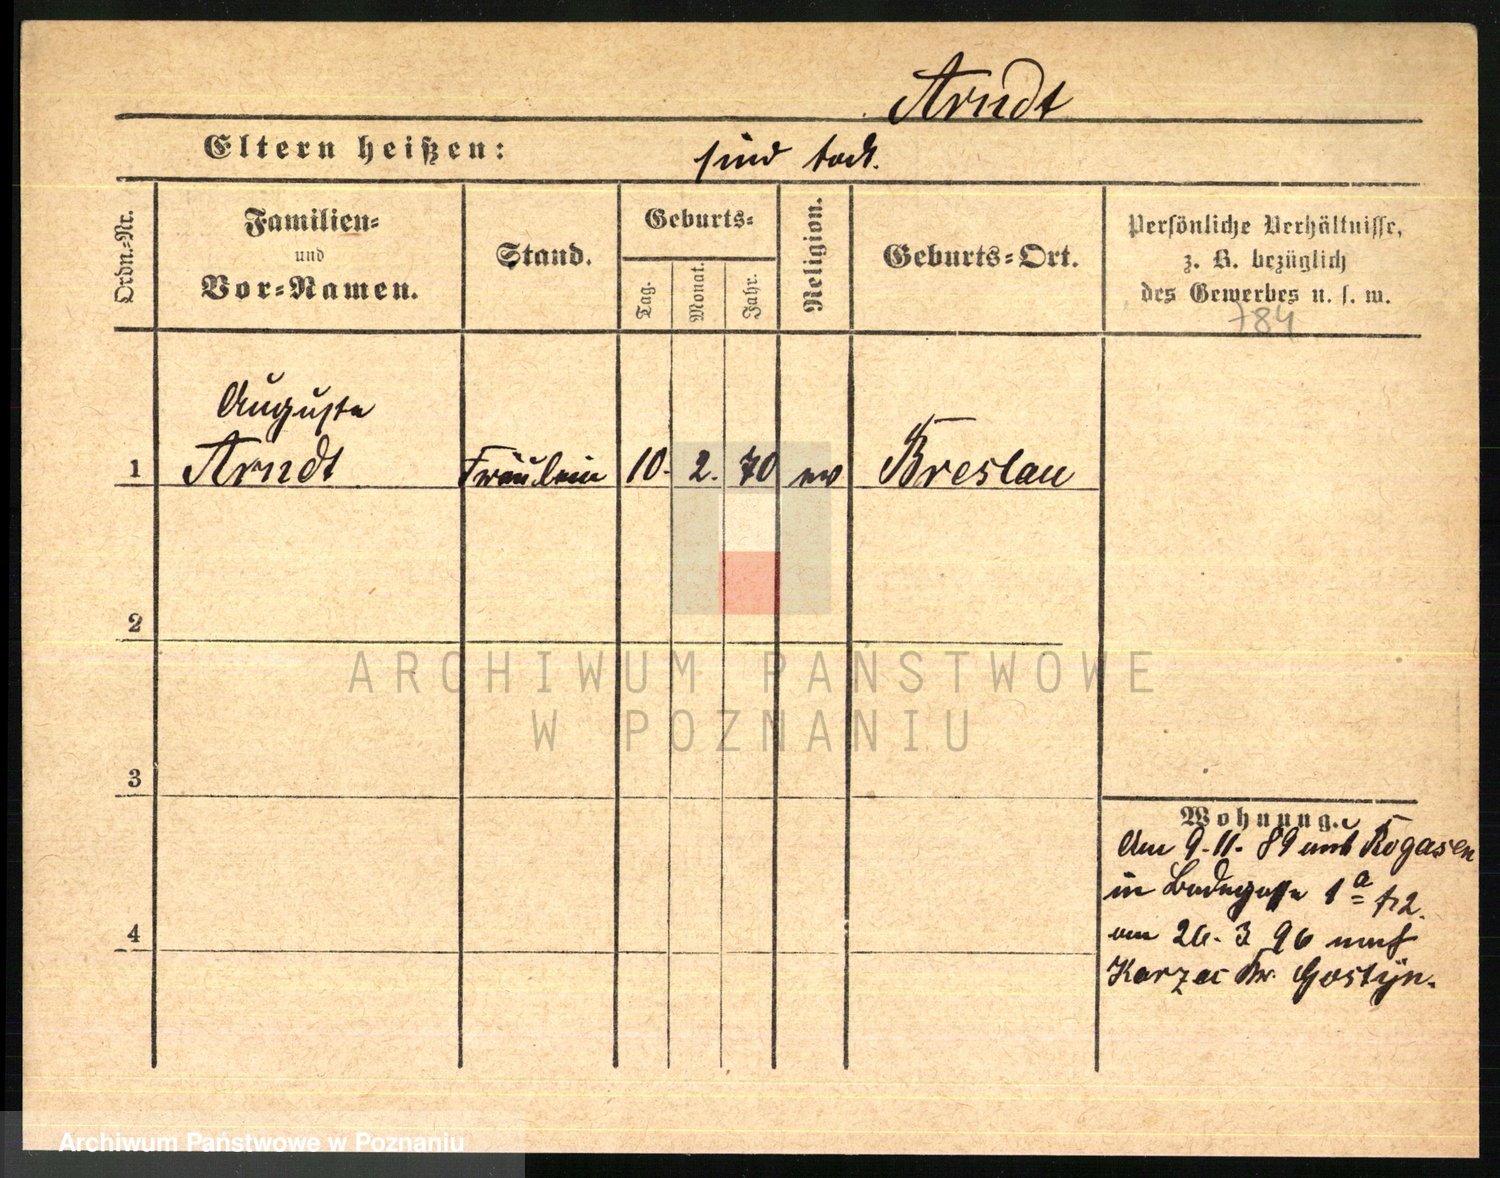 Arndt
Eltern heißen: sind todt.
Ordn.-Nr.
Familien-
und
Vor-Namen.
Stand.
Geburts-
Tag.
Monat.
Jahr.
Religion.
Geburts-Ort.
Persönliche Verhältnisse,
z. B. bezüglich
des Gewerbes u. s. w.
784
Auguste
1 Arndt Fräulein 10. 2. 70 ev Breslau
2
ARCHIWUM PAŃSTWOWE
W POZNANIU
3
Wohnung.
Am 9.11.89 aus Rogasen
in Badegasse 1a
4
am 26.3 96 nach
Karzec Kr. Gostyn.
Archiwum Państwowe w Poznaniu